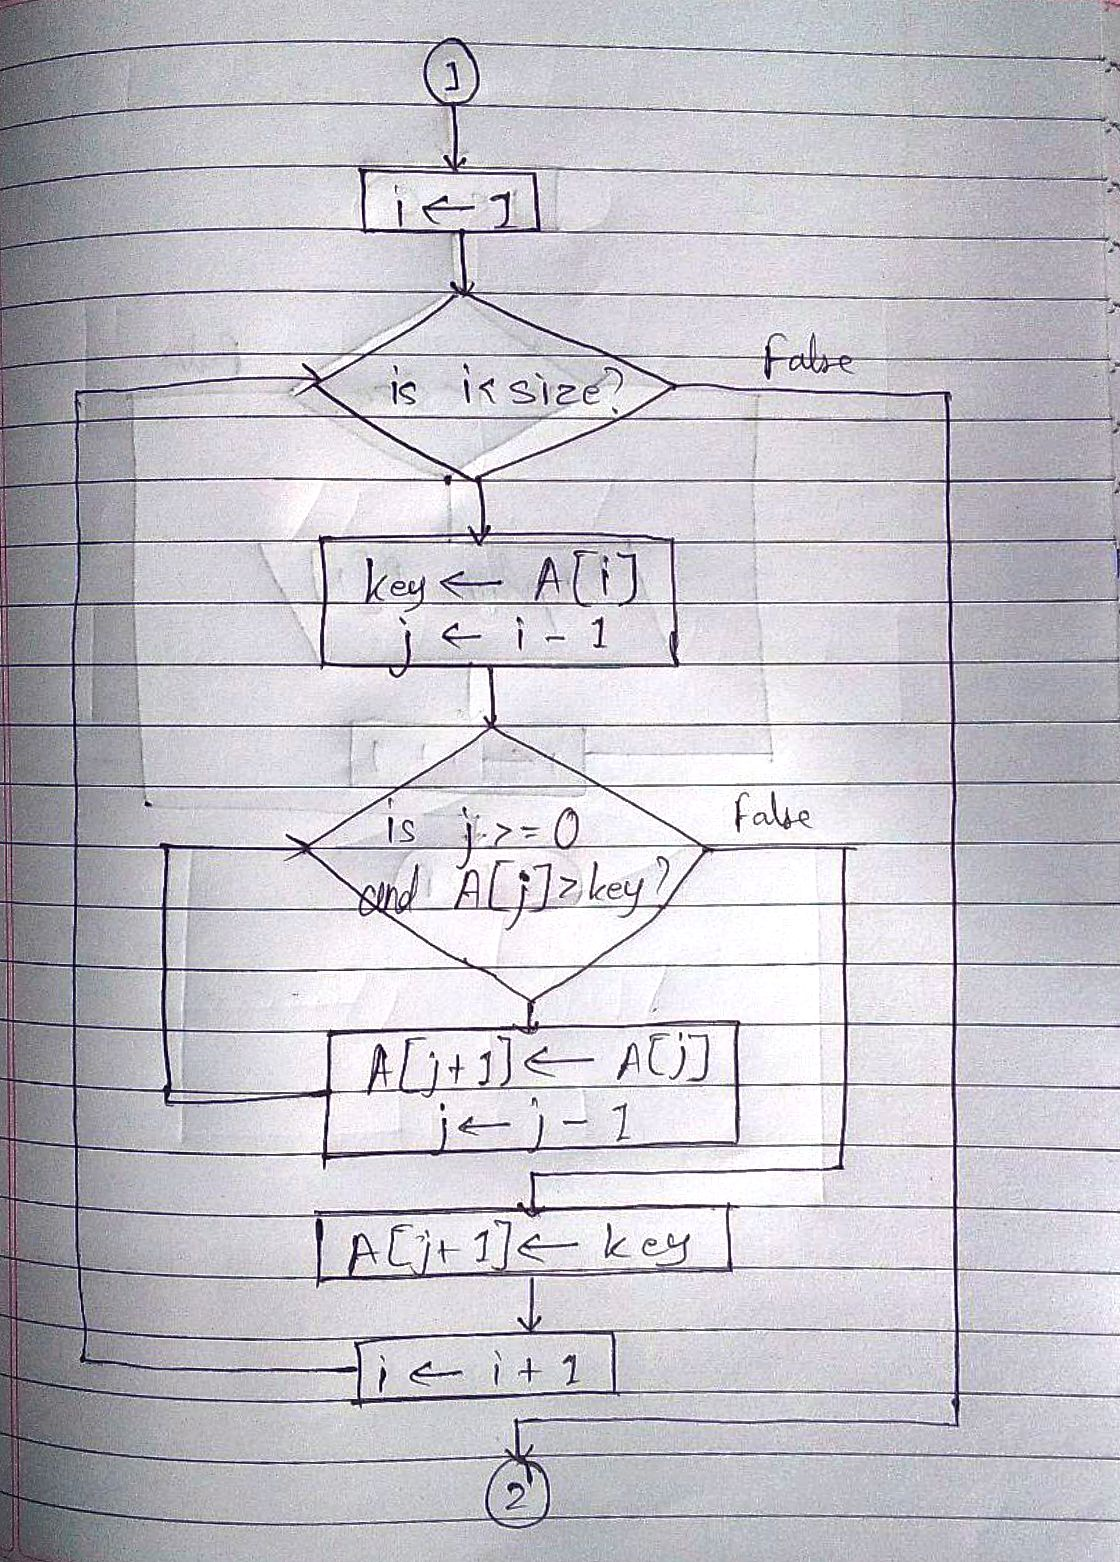 1
i ← 1
is i < size?
False
key ← A[i]
j ← i - 1
is j >= 0
and A[j] > key?
False
A[j+1] ← A[j]
j ← j - 1
A[j+1] ← key
i ← i + 1
2